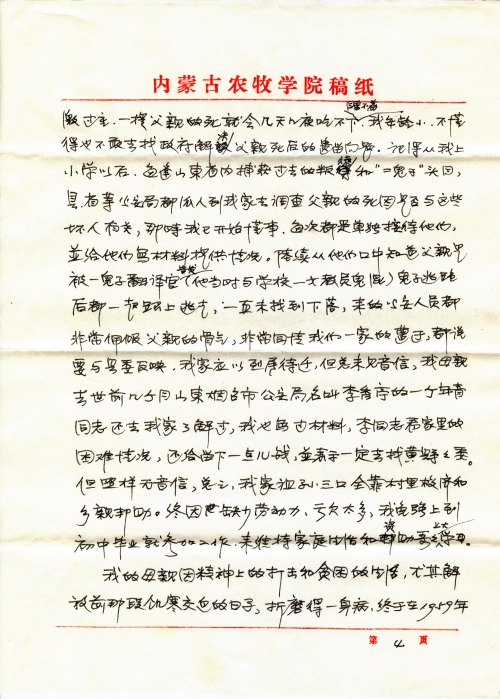 内蒙古农牧学院稿纸
做过主.一提父亲的死就会几天几夜吃不下.我年龄小.不懂
睡不着
得也不敢去找政府解决父亲死后的遗留问题.记得从我上
小学以后.每逢山东省内捕获过去的叛徒和"二鬼子"头目,
县省等公安局都派人到我家去调查父亲的死因是否与这些
坏人有关,那时我已开始懂事.每次都是单独接待他们,
并给他们写材料提供情况。陆续从他们口中知道父亲是
被一鬼子翻译官(他当时与学校一女教员鬼混)鬼子逃跑
后都一起跟上逃走,一直未找到下落,来的公安人员都
非常佩服父亲的骨气,非常同情我们一家的遭遇,都说
要与县委反映.我家应得到厚待之,但总未见音信,我母亲
去世前几个月山东烟台市公安局名叫李 的一个年青
同志还去我家了解过,我也写过材料,李同志看家里的
困难情况,还给留下一点儿钱,并表示一定去找黄县县委。
但照样无音信,总之,我家祖孙三口全靠村里救济和
乡亲帮助。终因缺少劳动力,亏欠太多,我勉强上到
初中毕业就参加工作.来维持家庭生活和帮助哥哥上大学。
我的母亲因精神上的打击和贫困的生活,尤其解
放前那段饥寒交迫的日子,折磨得一身病,终于在1959年
第 4 页